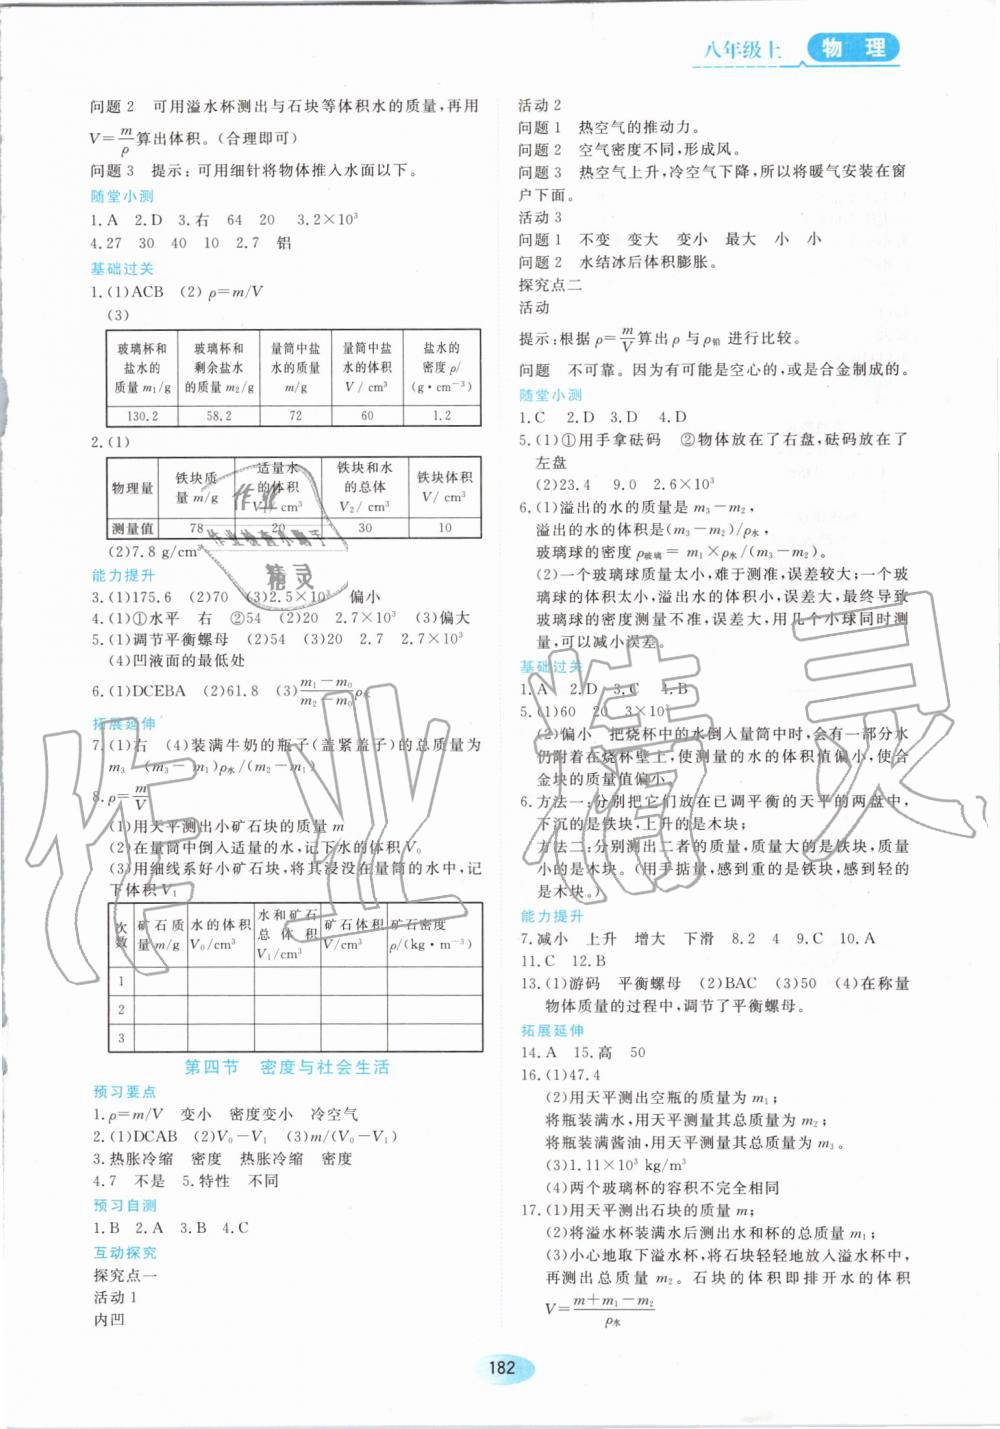 八年级上 物理
问题2 可用溢水杯测出与石块等体积水的质量,再用
V=m/ρ算出体积。(合理即可)
问题3 提示:可用细针将物体推入水面以下。
随堂小测
1.A 2.D 3.右 64 20 3.2×10³
4.27 30 40 10 2.7 铝
基础过关
1.(1)ACB (2)ρ=m/V
(3)
玻璃杯和盐水的质量 m₁/g 玻璃杯和剩余盐水的质量 m₂/g 量筒中盐水的质量 m/g 量筒中盐水的体积 V/cm³ 盐水的密度 ρ/(g·cm⁻³)
130.2 58.2 72 60 1.2
2.(1)
物理量 铁块质量 m/g 适量水的体积 V₁/cm³ 铁块和水的总体 V₂/cm³ 铁块体积 V/cm³
测量值 78 20 30 10
(2)7.8 g/cm³
能力提升
3.(1)175.6 (2)70 (3)2.5×10³ 偏小
4.(1)①水平 右 ②54 (2)20 2.7×10³ (3)偏大
5.(1)调节平衡螺母 (2)54 (3)20 2.7 2.7×10³
(4)凹液面的最低处
6.(1)DCEBA (2)61.8 (3)(m₁-m₀)/(m₂-m₀)ρ水
拓展延伸
7.(1)右 (4)装满牛奶的瓶子(盖紧盖子)的总质量为
m₃ (m₃-m₁)ρ水/(m₂-m₁)
8.ρ=m/V
(1)用天平测出小矿石块的质量 m
(2)在量筒中倒入适量的水,记下水的体积V₀
(3)用细线系好小矿石块,将其浸没在量筒的水中,记
下体积V₁
次数 矿石质量 m/g 水的体积 V₀/cm³ 水和矿石总体积 V₁/cm³ 矿石体积 V/cm³ 矿石密度 ρ/(kg·m⁻³)
1
2
3
第四节 密度与社会生活
预习要点
1.ρ=m/V 变小 密度变小 冷空气
2.(1)DCAB (2)V₀-V₁ (3)m/(V₀-V₁)
3.热胀冷缩 密度 热胀冷缩 密度
4.7 不是 5.特性 不同
预习自测
1.B 2.A 3.B 4.C
互动探究
探究点一
活动1
内凹
活动2
问题1 热空气的推动力。
问题2 空气密度不同,形成风。
问题3 热空气上升,冷空气下降,所以将暖气安装在窗
户下面。
活动3
问题1 不变 变大 变小 最大 小 小
问题2 水结冰后体积膨胀。
探究点二
活动
提示:根据 ρ=m/V 算出 ρ 与 ρ铅 进行比较。
问题 不可靠。因为有可能是空心的,或是合金制成的。
随堂小测
1.C 2.D 3.D 4.D
5.(1)①用手拿砝码 ②物体放在了右盘,砝码放在了
左盘
(2)23.4 9.0 2.6×10³
6.(1)溢出的水的质量是 m₃-m₂,
溢出的水的体积是(m₃-m₂)/ρ水,
玻璃球的密度 ρ玻璃=m₁×ρ水/(m₃-m₂)。
(2)一个玻璃球质量太小,难于测准,误差较大;一个玻
璃球的体积太小,溢出水的体积小,误差大,最终导致
玻璃球的密度测量不准,误差大,用几个小球同时测
量,可以减小误差。
基础过关
1.A 2.D 3.C 4.B
5.(1)60 20 3×10³
(2)偏小 把烧杯中的水倒入量筒中时,会有一部分水
仍附着在烧杯壁上,使测量的水的体积值偏小,使合
金块的质量值偏小。
6.方法一:分别把它们放在已调平衡的天平的两盘中,
下沉的是铁块,上升的是木块;
方法二:分别测出二者的质量,质量大的是铁块,质量
小的是木块。(用手掂量,感到重的是铁块,感到轻的
是木块。)
能力提升
7.减小 上升 增大 下滑 8.2 4 9.C 10.A
11.C 12.B
13.(1)游码 平衡螺母 (2)BAC (3)50 (4)在称量
物体质量的过程中,调节了平衡螺母。
拓展延伸
14.A 15.高 50
16.(1)47.4
(2)用天平测出空瓶的质量为 m₁;
将瓶装满水,用天平测量其总质量为 m₂;
将瓶装满酱油,用天平测量其总质量为 m₃。
(3)1.11×10³ kg/m³
(4)两个玻璃杯的容积不完全相同
17.(1)用天平测出石块的质量 m;
(2)将溢水杯装满水后测出水和杯的总质量 m₁;
(3)小心地取下溢水杯,将石块轻轻地放入溢水杯中,
再测出总质量 m₂。石块的体积即排开水的体积
V=(m+m₁-m₂)/ρ水
182
作业精灵
作业检查小助手